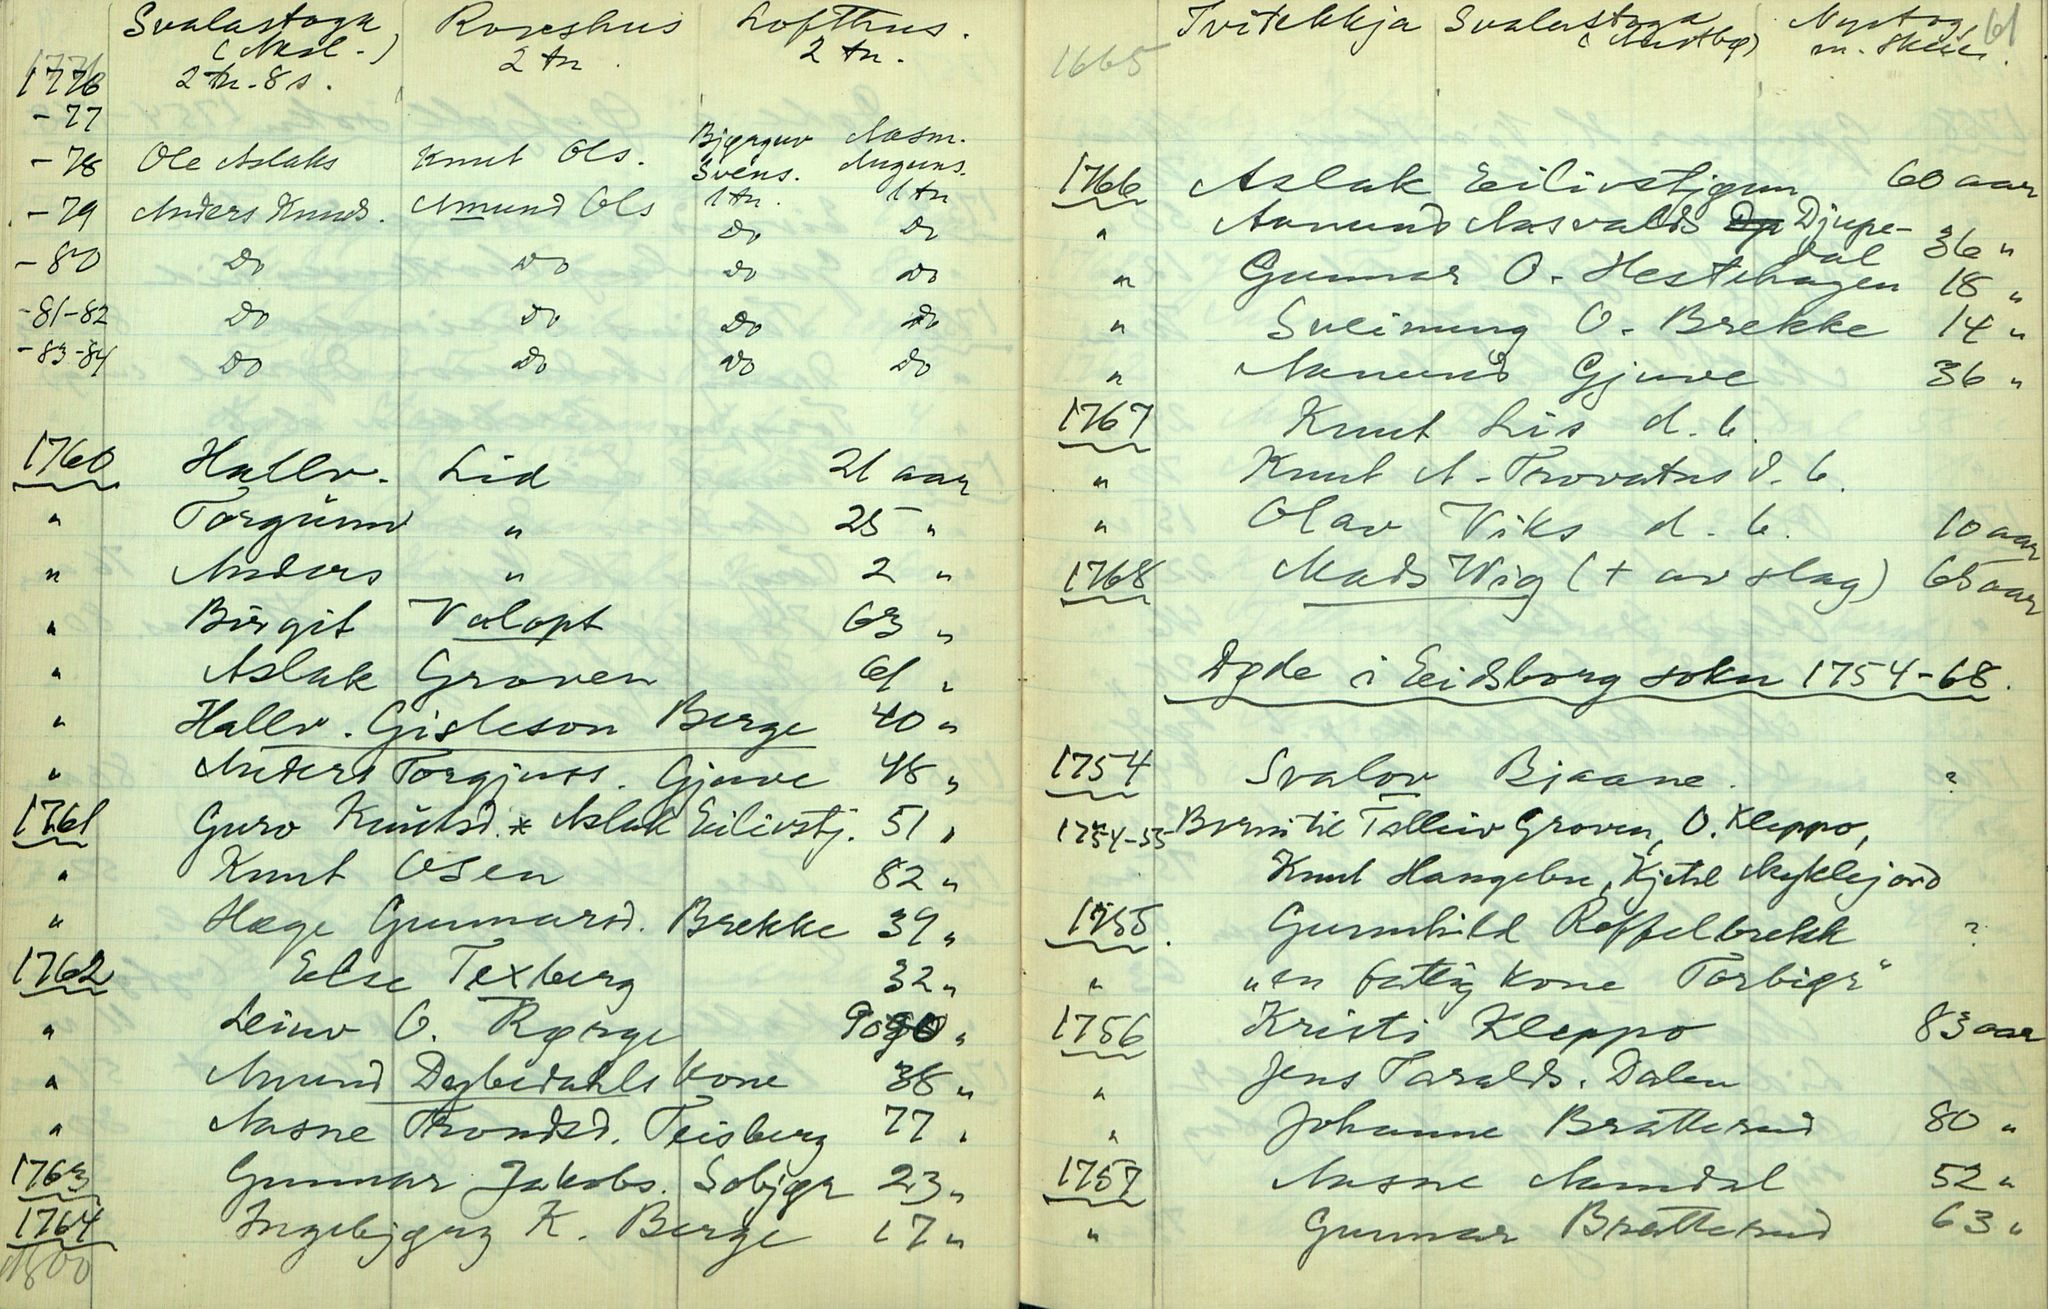 Svalastoga Roeshus Lofthus.
2 tn. 2 tn.
1776 2 tn. 8 s.
- 77
Bjørguv Aasm.
- 78 Ole Aslaks Knut Ols. Svens.
1 tn. 1 tn
- 79 Anders Knuds. Amund Ols Do Do
- 80 Do Do Do Do
- 81-82 Do Do Do Do
- 83-84 Do Do Do Do
1760 Hallv. Lid 21 aar
" Torgunn " 25 "
" Anders " 2 "
" Birgit Valopt 63 "
" Aslak Groven 61 "
" Hallv. Gisleson Berge 40 "
" Anders Torgjuss. Gjuve 48 "
1761 Guro Knutsd. * Aslak Eilivstj. 51 "
" Knut Osen 82 "
" Hæge Gunnarsd. Brekke 39 "
1762 Else Texberg 32 "
" O. Rørge 90 "
" Amund Dybedahls kone 38 "
" Aasne Trondsd. Teisberg 77 "
1763 Gunnar Jakobs. 23 "
1764 Ingebjørg K. Berge 17 "
1800
61
Tvitekkja Svalastoga Nystog
1665 m. Skeie.
1766 Aslak Eilivstjønn 60 aar
" Aamund Aasvalds Djupe-
dal 36 "
" Gunnar O. Hestehagen 18 "
" Sveinung O. Brekke 14 "
" Aamund Gjuve 36 "
1767 Knut Lis d. b.
" Knut A. Trovatns d. b.
" Olav Viks d. b. 10 aar
1768 Mads Wig (+ av slag) 65 aar
Døde i Eidsborg sokn 1754-68.
1754 Svalov Bjaane. ?
1754-55 Born til Talleiv Groven, O. Kleppo,
Knut Haugebu, Kjetil Myklejord
1755. Gunnhild Roffelbrekk ?
" "en fattig kone Torbiør"
1756 Kristi Kleppo 83 aar
" Jens Taralds. Dalen
" Johanne Bratterud 80 "
1757 Aasne Aamdal 52 "
" Gunnar Bratterud 63 "